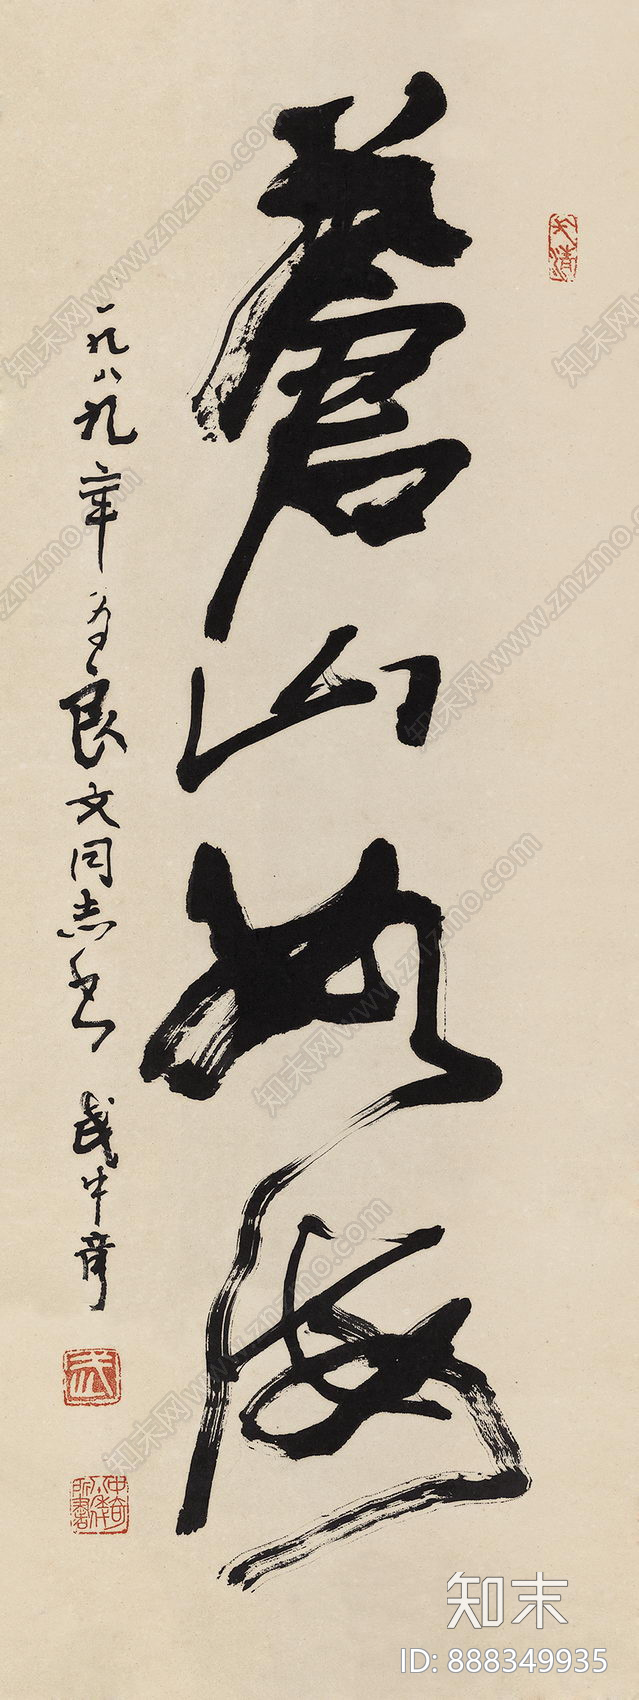 蒼山如海
一九八九年为良文同志书 武中奇
知末
ID: 888349935
知末网www.znzmo.com